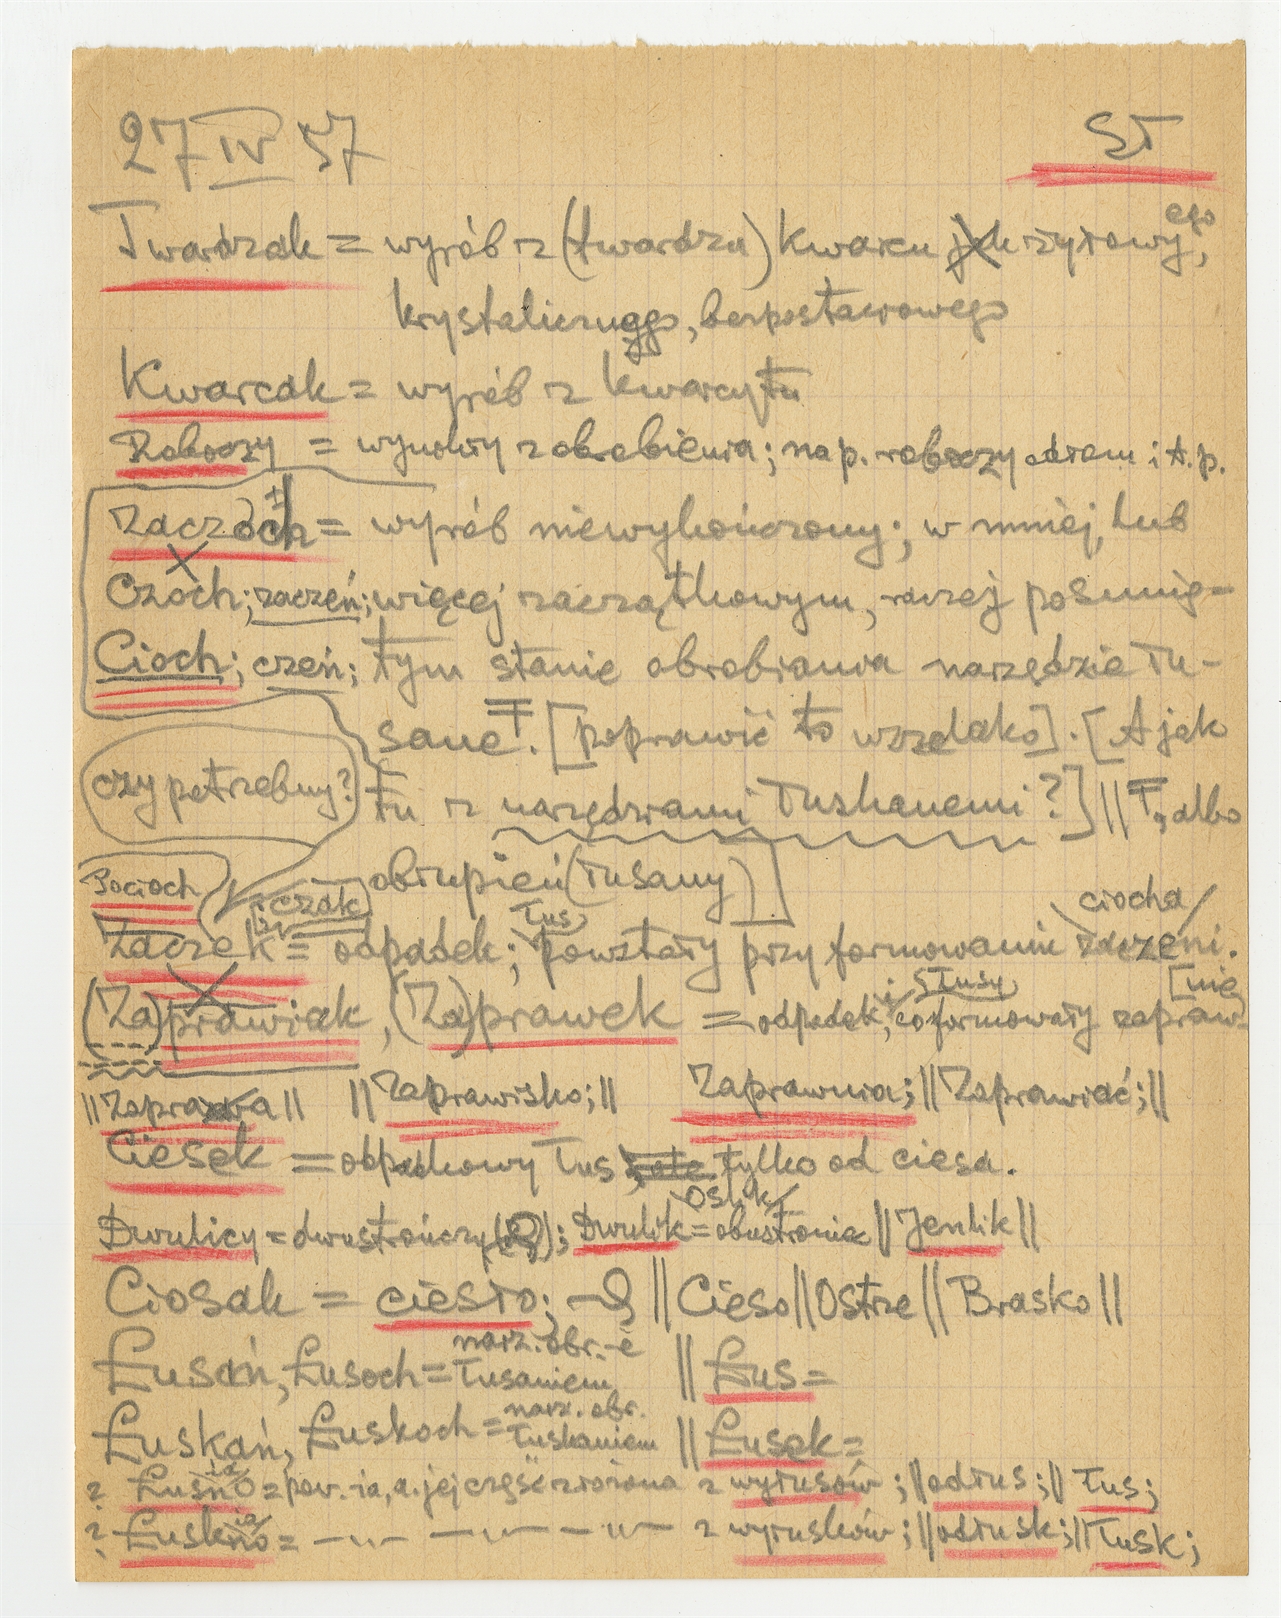 27 IV 57
ST
Twardzak = wyrób z (twardzu) kwarcu żyłowyego,
krystalicznego, bezpostaciowego
Kwarcak = wyrób z kwarcytu
Roboczy = wynikły z obrobienia; nap. roboczy odłam i t.p.
Zaczoch = wyrób niewykończony; w mniej, lub
Czoch; zaczeń; więcej zaczątkowym, raczej posunię-
Cioch; czeń; tym stanie obrobiania narzędzie łu-
sane. [poprawić to wszelako]. [A jak
czy potrzebny? tu z narzędziami łuskanemi?] || Ŧ, albo
obłupień (łusany)]
Pocioch
czak
Zaczek = odpadek; łus, powstały przy formowaniu zaczeni. ciocha
(Za)prawiak, (Za)prawek = odpadek, i słusy coformowały zapraw [nie
|| Zaprawa || || Zaprawisko; || Zaprawnia; || Zaprawiać; ||
Ciesek = odpadkowy łus tylko od ciesa.
Oślik
Dwulicy = dwustrończy; Dwulik = obustronia || Jenlik ||
Ciosak = ciesło; || Cieso || Ostrze || Brasko ||
narz. obr.-e
Łusań, Łusoch = łusaniem || Łus =
narz. obr.
Łuskań, Łuskoch = łuskaniem || Łusek =
? Łuśnoia = pow.-ia, a. jej część złożona z wyłusów; || odłus; || łus;
? Łusknoia = —"— —"— —"— z wyłusków; || odłusk; || Łusk;